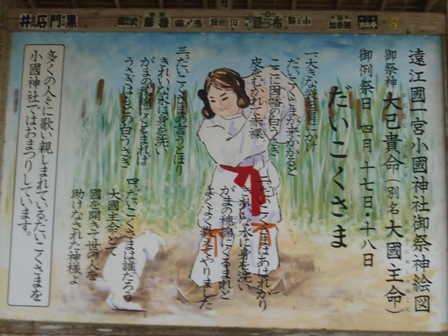 遠江國一宮小國神社御祭神絵図
御祭神 大己貴命(別名 大國主命)
御例祭日 四月 十七日・十八日
だいこくさま
一、大きな袋を肩にかけ
だいこくさまが来かかると
ここに因幡の白うさぎ
皮をむかれて赤裸
二、だいこくさまはあはれがり
きれいな水に身を洗い
がまの穂綿にくるまれと
よくよく教えてやりました
三、だいこくさまの言うとほり
きれいな水に身を洗い
がまの穂綿にくるまれば
うさぎはもとの白うさぎ
四、だいこくさまは誰だろう
大國主命とて
國を開きて世の人を
助けなされた神様よ
多くの人々に歌い親しまれている、だいこくさまを
小國神社ではおまつりしています。